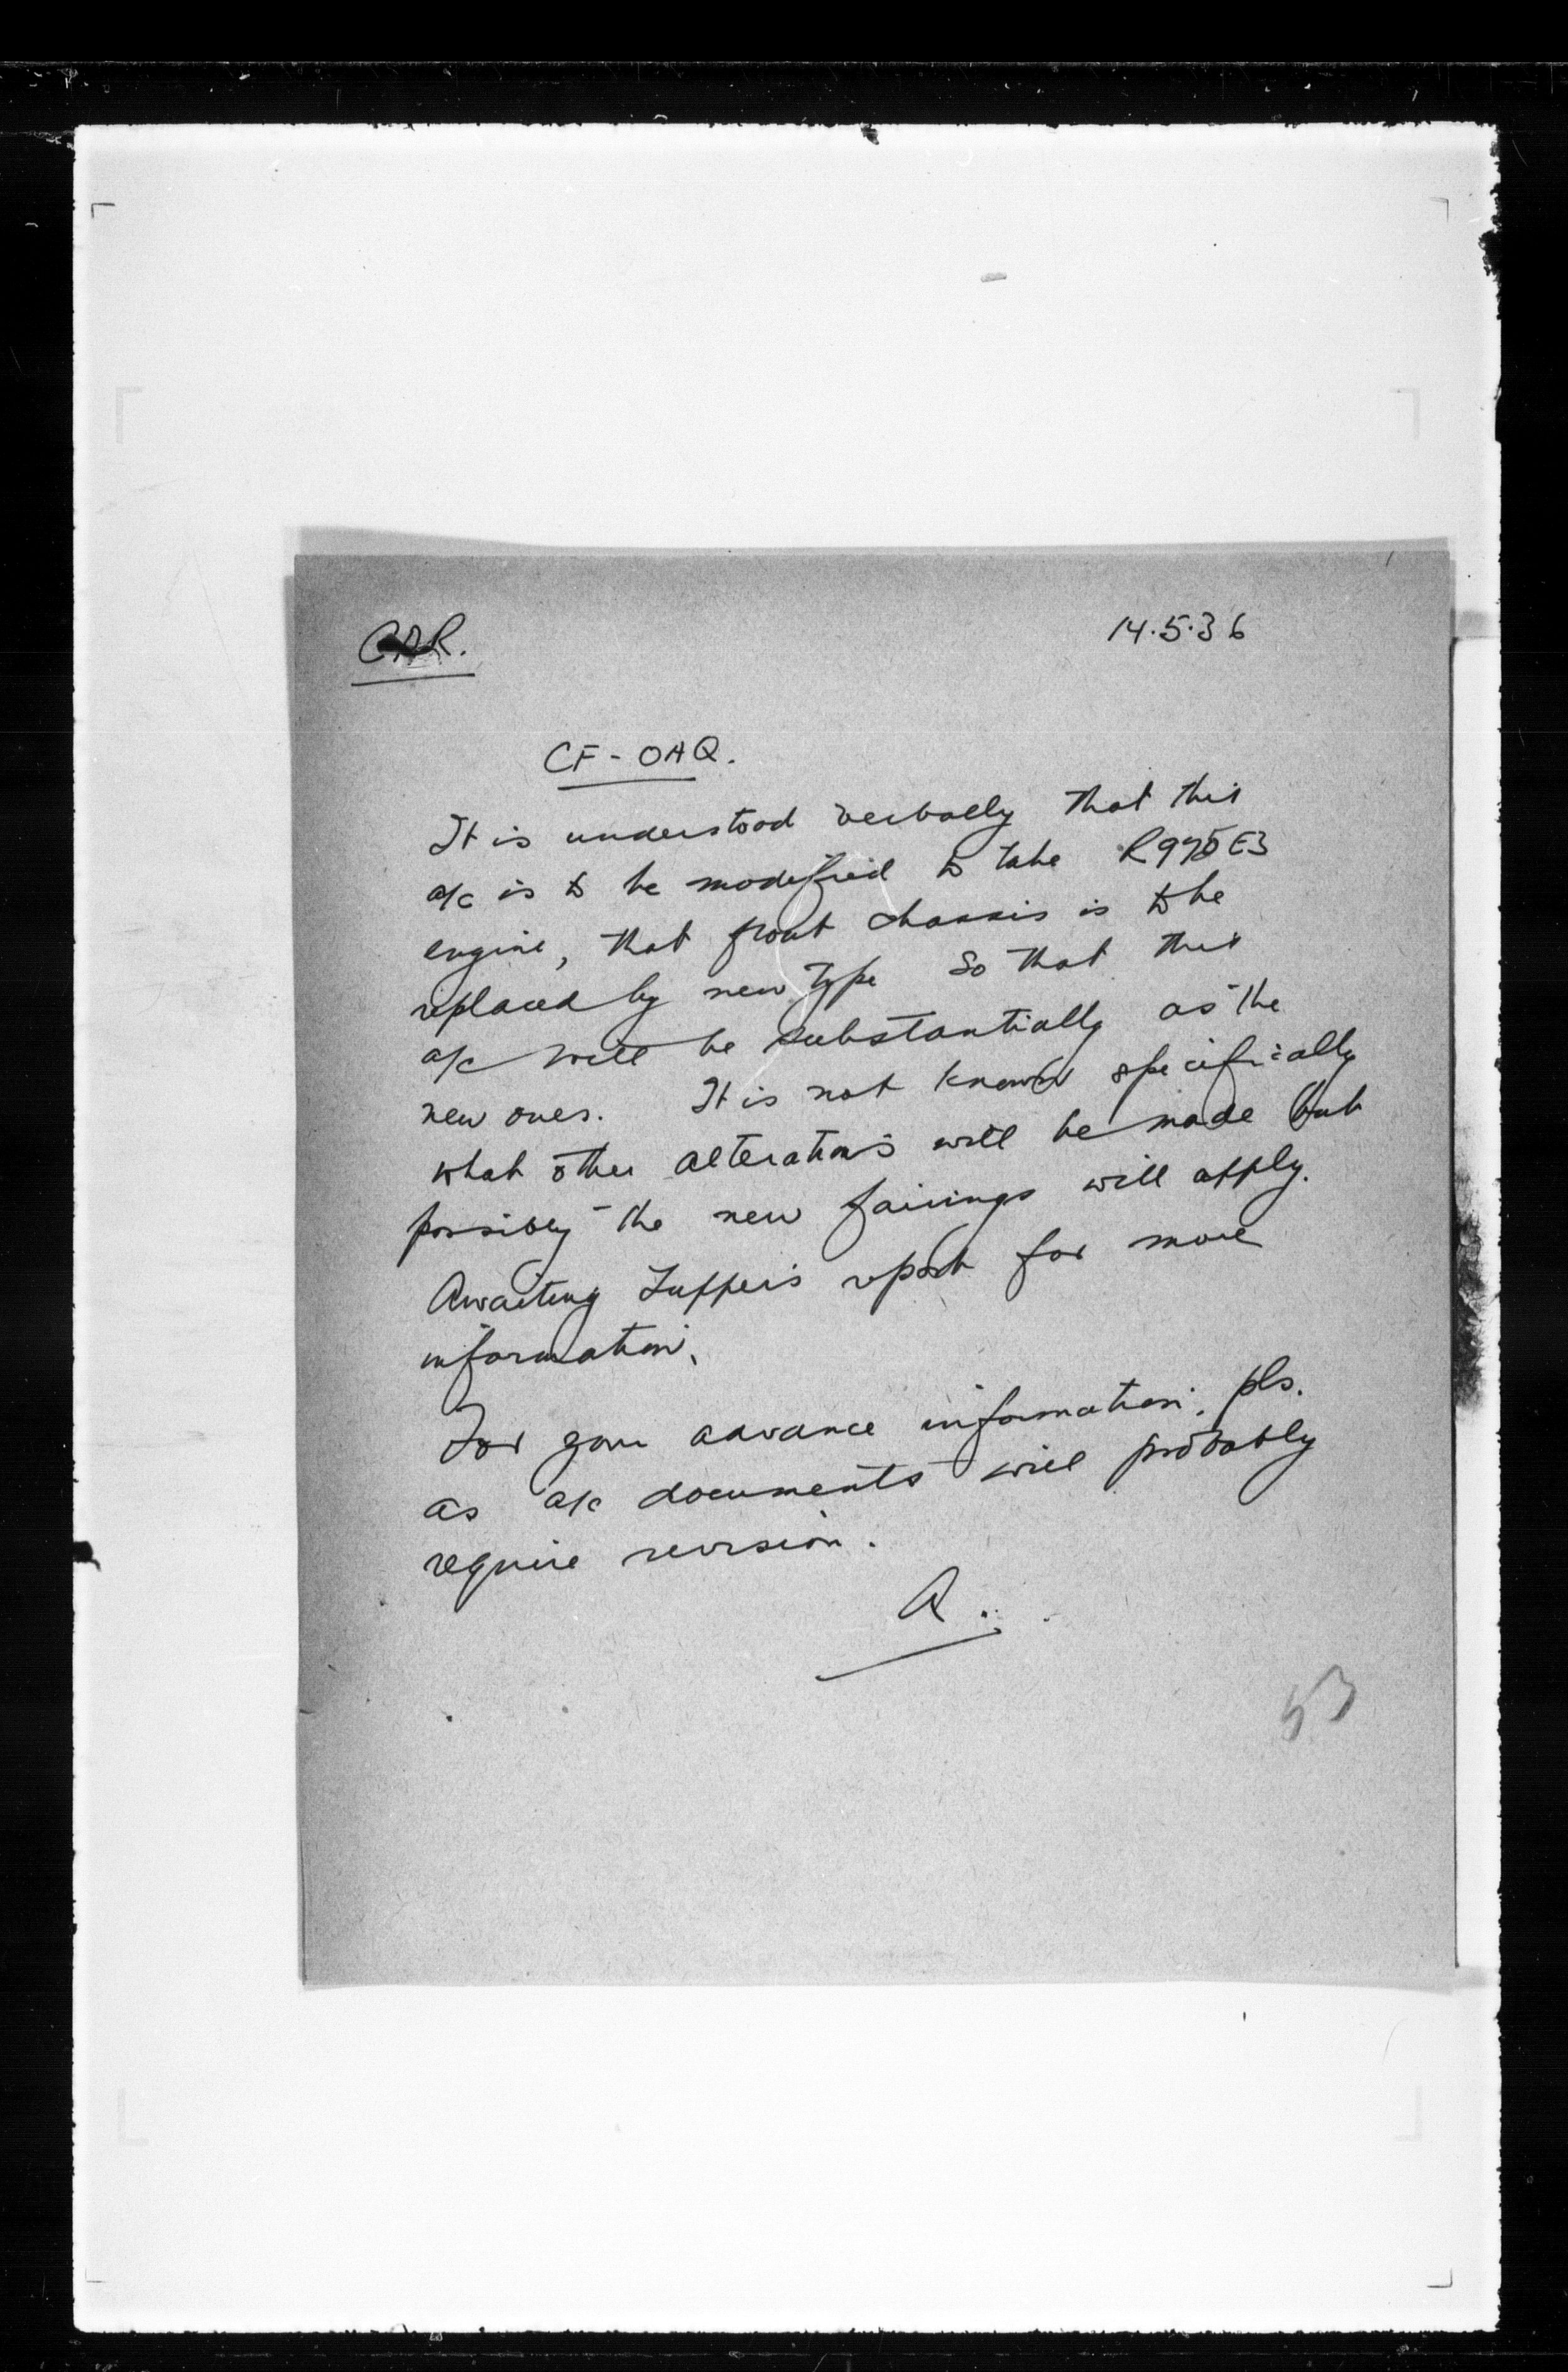 C.A.R.
14.5.36
CF-OAQ.
It is understood verbally that this
a/c is to be modified to take R975E3
engine, that front chassis is to be
replaced by new type so that this
a/c will be substantially as the
new ones. It is not known specifically
what other alterations will be made but
possibly the new fairings will apply.
Awaiting Tupper's report for more
information.
For your advance information, pls.
as a/c documents will probably
require revision.
A.
53